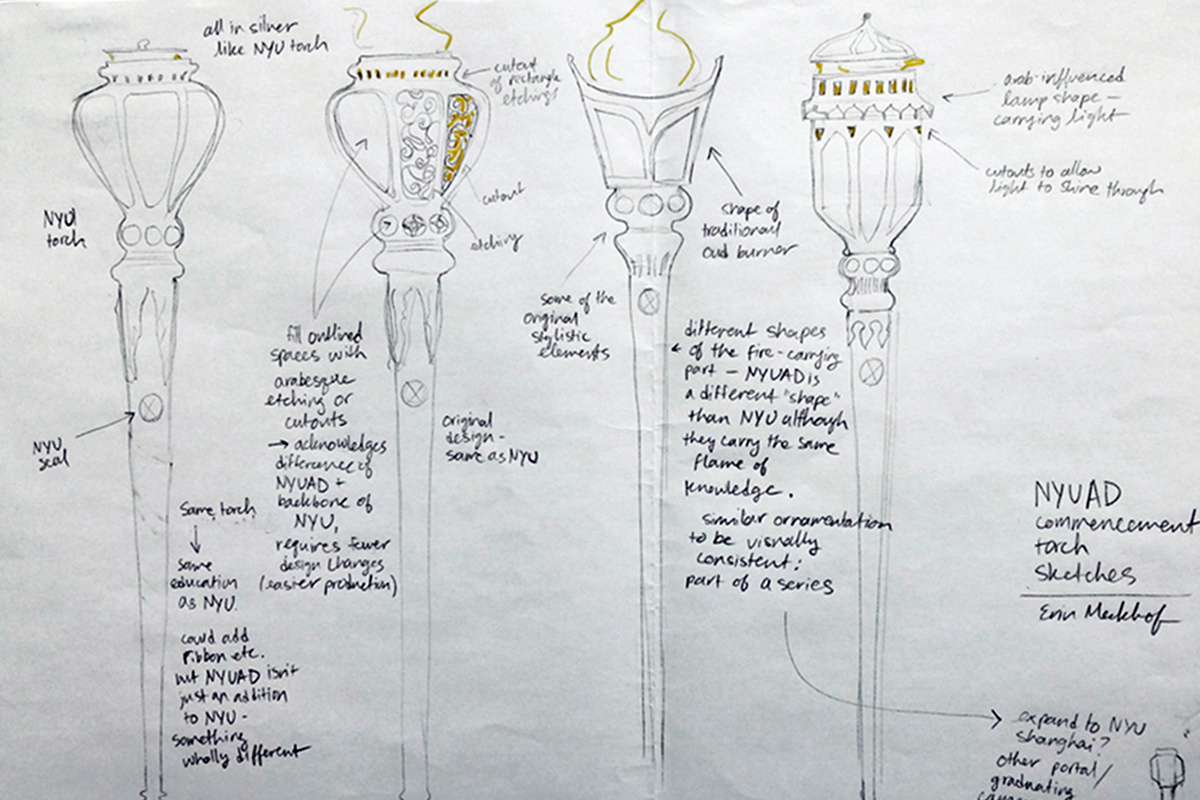 all in silver
like NYU torch
NYU
torch
NYU
seal
same torch
same
education
as NYU.
could add
ribbon etc.
but NYUAD isn't
just an addition
to NYU -
something
wholly different
cutout
of rectangle
etchings
cutout
etching
fill outlined
spaces with
arabesque
etching or
cutouts
→ acknowledges
difference of
NYUAD +
backbone of
NYU,
requires fewer
design changes
(easier production)
original
design -
same as NYU
some of the
original
stylistic
elements
shape of
traditional
oud burner
different shapes
of the fire-carrying
part - NYUAD is
a different "shape"
than NYU although
they carry the same
flame of
knowledge.
similar ornamentation
to be visually
consistent:
part of a series
arab-influenced
lamp shape -
carrying light
cutouts to allow
light to shine through
NYUAD
commencement
torch
sketches
Erin Meekhof
expand to NYU
shanghai?
other portal/
graduating